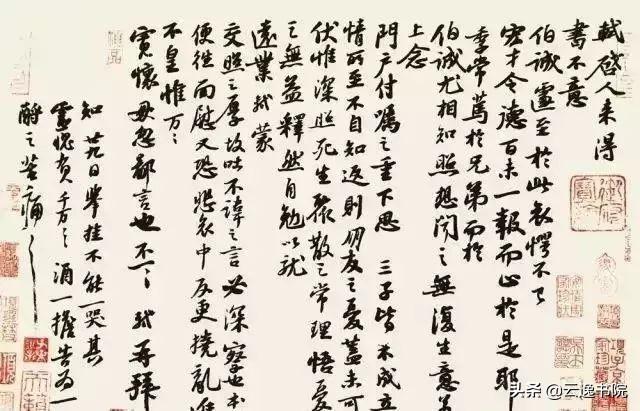 軾啓人来得
書不意
伯誠遽至於此哀愕不已
宏才令德百未一報而止於是耶
季常篤於兄弟而於
伯誠尤相知照想聞之無復生意
上念
門户付嘱之重下思 三子皆未成立
情所至不自知返則朋友之憂蓋未可
伏惟深照死生聚散之常理悟憂
之無益釋然自勉以就
遠業軾蒙
交照之厚故吐不諱之言必深察也本
便往面慰又恐悲哀中反更撓乱進
不皇惟万〻
寬懷毋忽鄙言也不一〻軾再拜
知廿九日舉挂不能一哭其
靈愧負千万〻酒一擔告為一
酹之苦痛〻
头条 @云逸书院